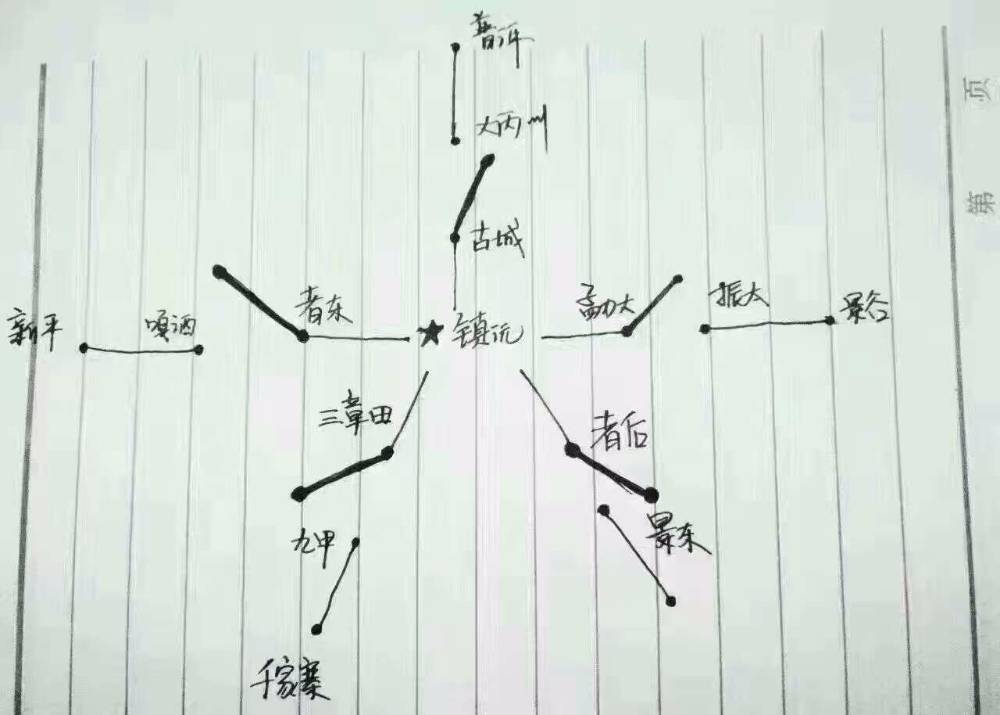 普洱
大丙州
古城
新平
嘎洒
者东
镇沅
勐大
振太
景谷
三章田
者后
九甲
景东
千家寨
第 页